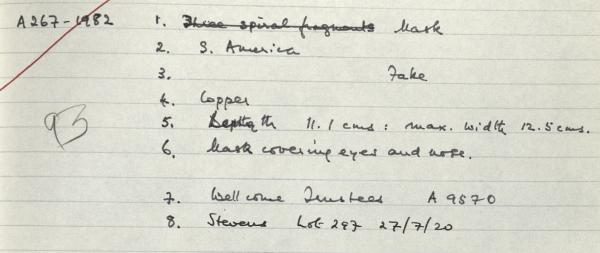 A267-1982 1. Three spiral fragments Mask
2. S. America
3. Fake
4. Copper
93
5. Length 11.1 cms : max. width 12.5 cms.
6. Mask covering eyes and nose.
7. Wellcome Trustees A 9570
8. Stevens Lot 297 27/7/20